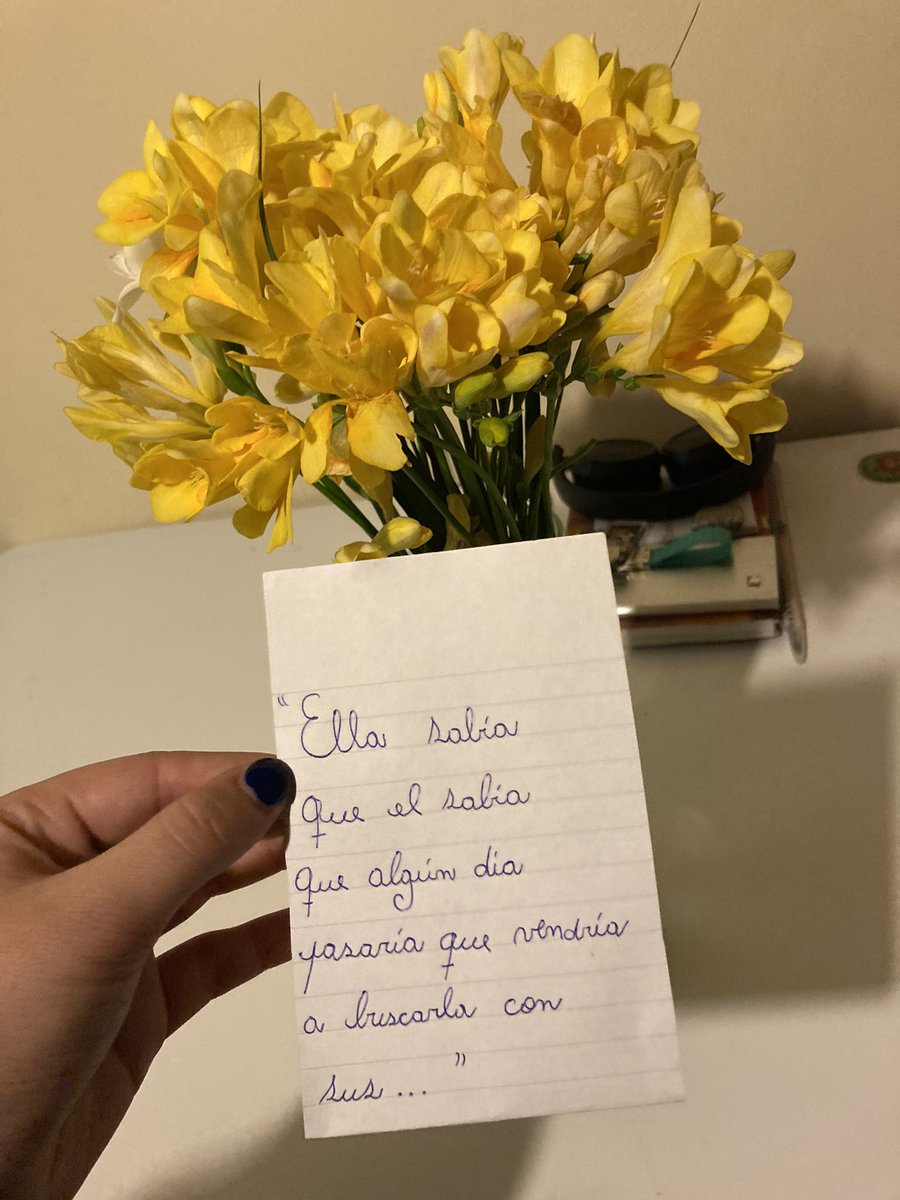 “Ella sabía
que el sabía
que algún día
pasaría que vendría
a buscarla con
sus... ”